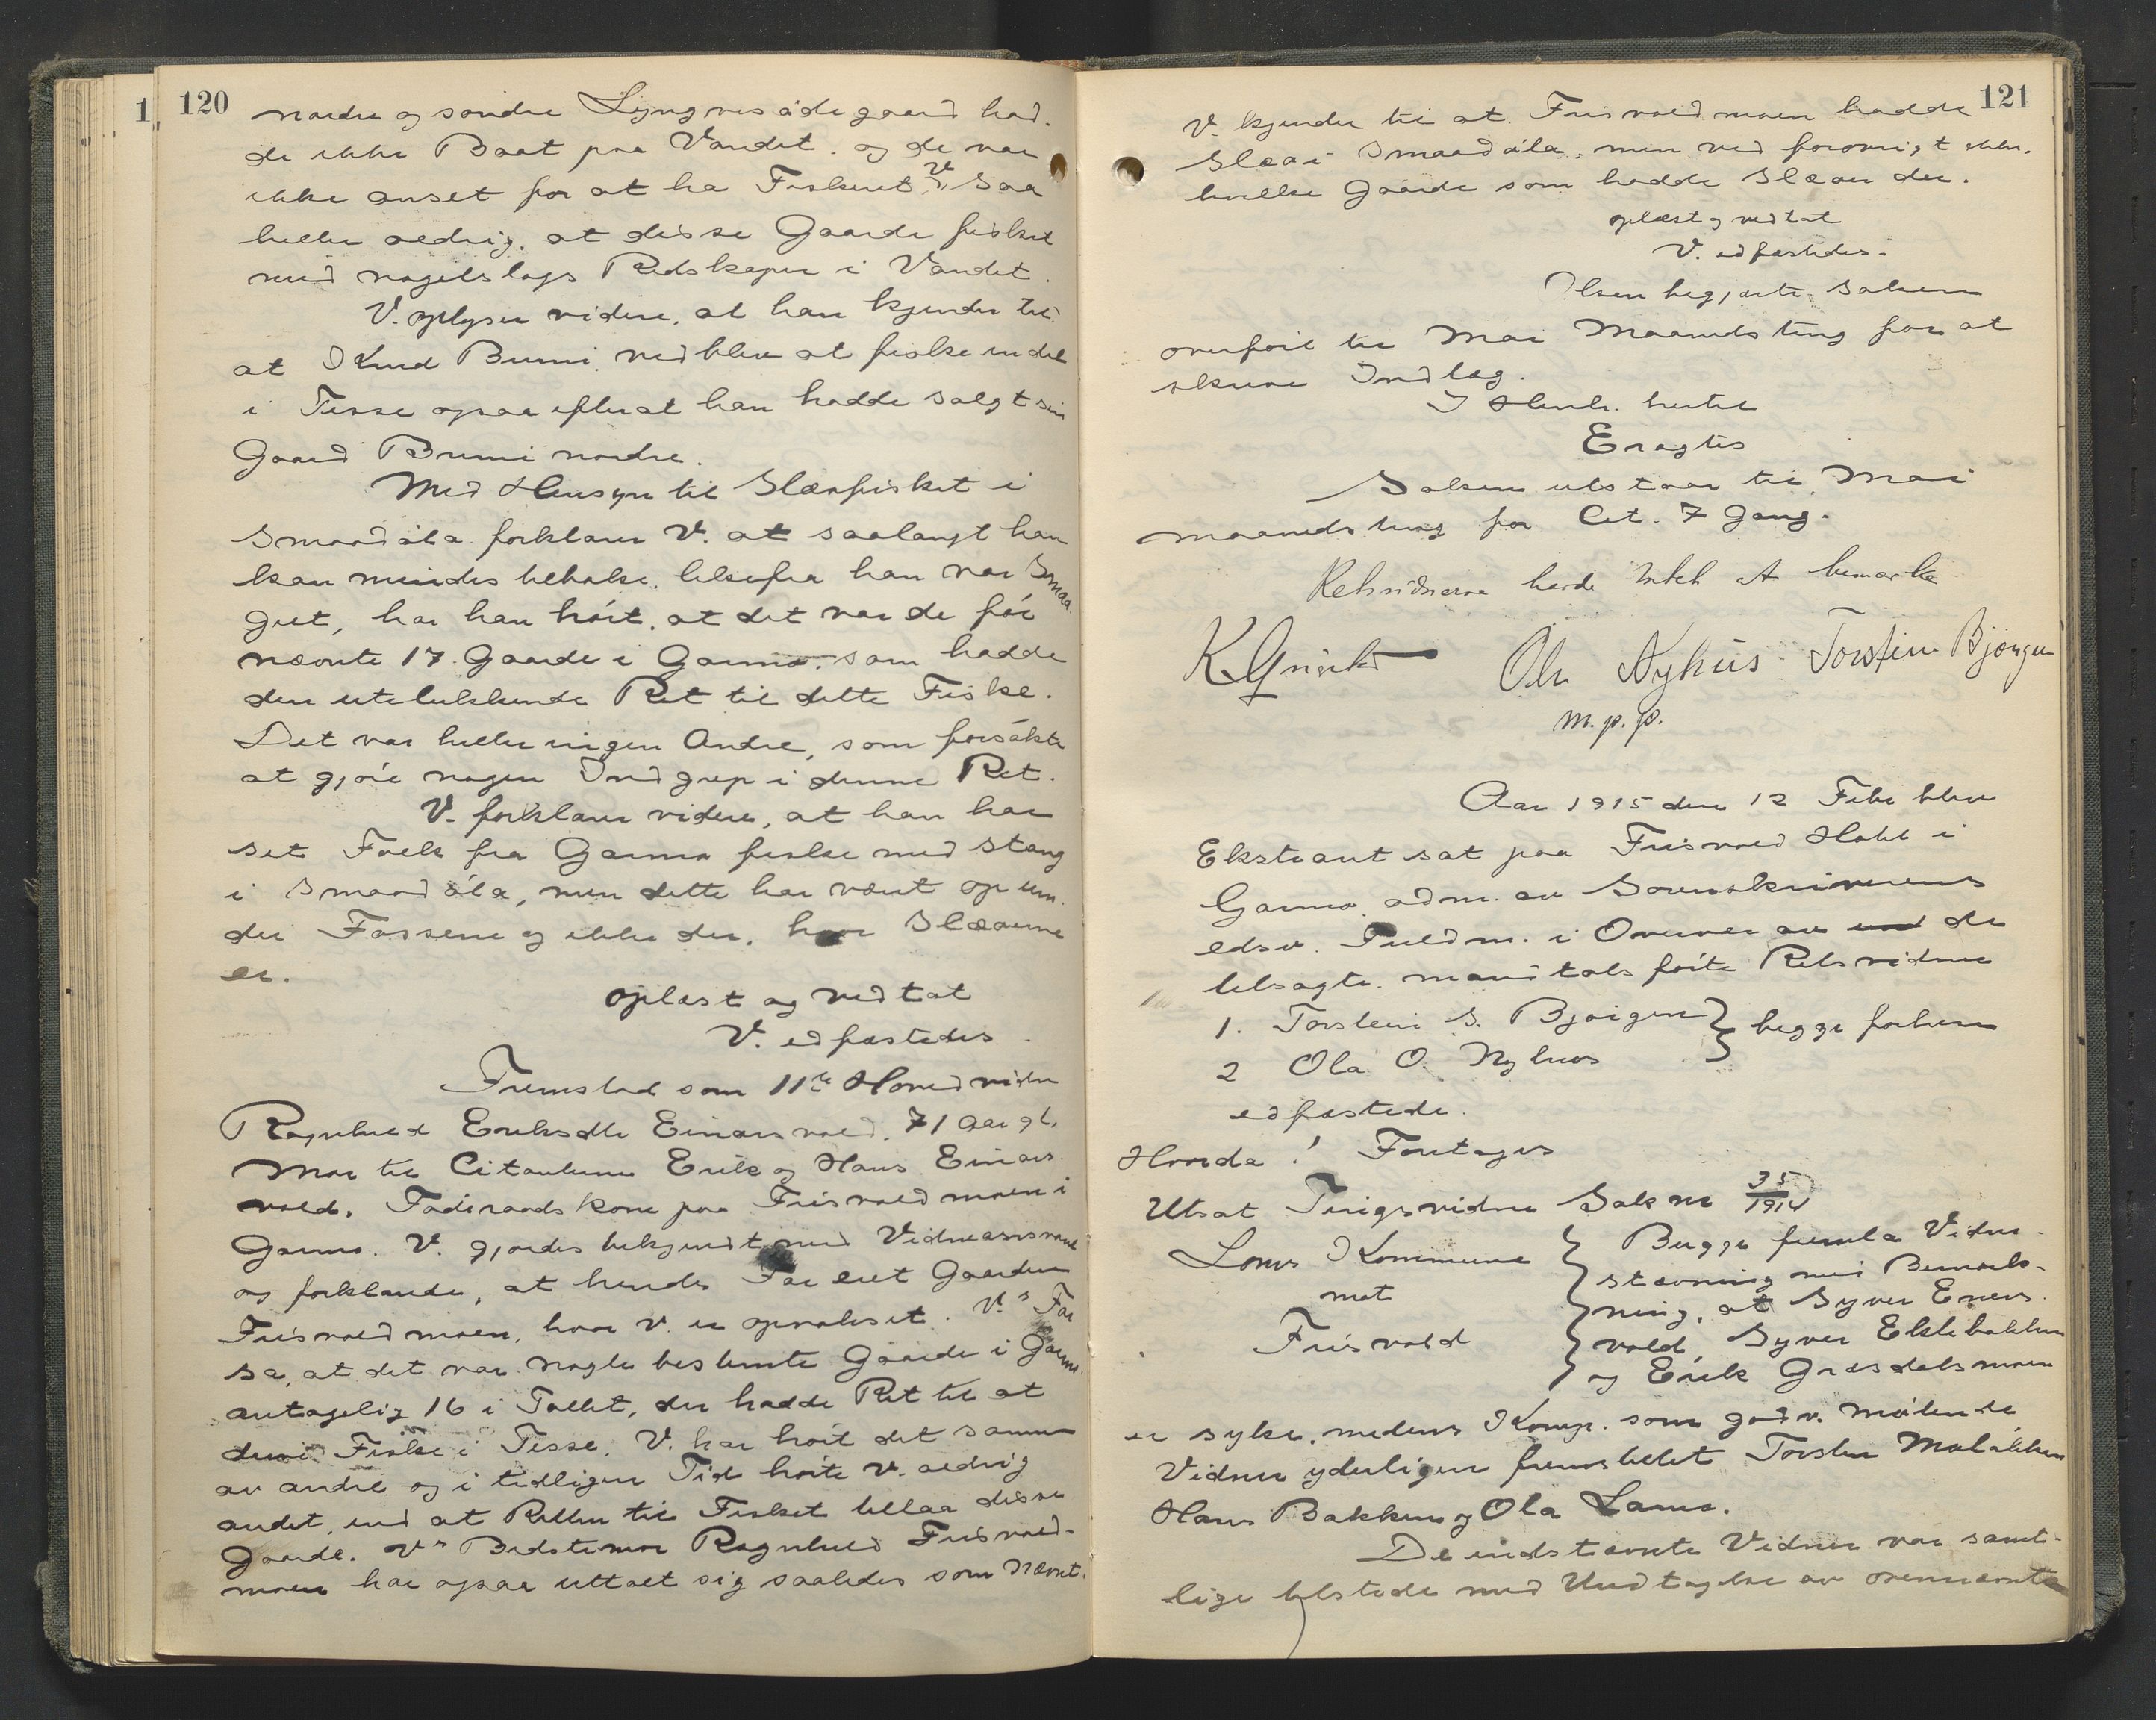 120
nordre og søndre Lyngvesødegaard had-
de ikke Baat paa Vandet. og de var
ikke anset for at ha Fiskeret. V. saa
heller aldrig. at disse Gaarde fisket
med nogetslags Redskaper i Vandet.
V. oplyser videre, at han kjender til
at Knud Brimi. vedblev at fiske endel
i Tesse ogsaa efterat han hadde solgt sin
Gaard Brimi nordre.
Med Hensyn til Slæafisket i
Smaadøla forklarer V. at saalangt han
kan mindes tilbake. like fra han var Smaa-
gut, har han hørt, at det var de før
nævnte 17. Gaarde i Garmo. som hadde
den utelukkende Ret til dette Fiske.
Det var heller ingen Andre, som forsøkte
at gjøre nogen Indgrep i denne Ret.
V. forklarer videre, at han har
set Folk fra Garmo fiske med Stang
i Smaadøla, men dette har været op un-
der Fossene og ikke der, hvor Slæaerne
er.
oplæst og vedtat
V. edfæstedes.
Fremstod som 11te Hovedvidne
Ragnhild Eriksdtr Einarsvold. 71 Aar gl.
Mor til Citanterne Erik og Hans Einars-
vold. Føderaadskone paa Frisvoldmoen i
Garmo. V. gjordes bekjendt med Vidneansvaret
og forklarede, at hendes Far eiet Gaarden
Frisvoldmoen, hvor V. er opvokset. V.s Far
sa, at det var nogle bestemte Gaarde i Garmo.
antagelig 16 i Tallet, der hadde Ret til at
drive Fiske i Tesse. V. har hørt det samme
av andre og i tidligere Tid hørte V. aldrig
andet, end at Retten til Fisket tillaa disse
Gaarde. V.s Bedstemor Ragnhild Frisvold-
moen har ogsaa uttalt sig saaledes som nævnt.
121
V. kjender til at Frisvoldmoen hadde
Slæa i Smaadøla, men ved forøvrigt ikke.
hvilke Gaarde som hadde Slæaer der.
oplæst og vedtat
V. edfæstedes.
Olsen begjærte Saken
overført til Mai Maanedsting for at
skrive Indlæg.
I Henh. hertil
Eragtes
Saken utstaar til Mai
maanedsting for Cit. 7 Gang.
Retsvidnerne havde intet at bemærke
Ola Nyhus Torstein Bjørgen
m.p.p.
Aar 1915 den 12 Febr blev
Ekstraret sat paa Frisvold Hotel i
Garmo adm. av Sorenskriverens
edsv. Fuldm. i Overvær av de
tilsagte. mandtalsførte Retsvidner
1. Torstein S. Bjørgen } begge forhen
2 Ola O. Nyhus
edfæstede.
Hvorda! Foretages
Utsat Tingsvidne Sak nr 35/1914
Loms Kommune
mot
Frisvold
Bugge fremla Vidne-
stævning med Bemærk-
ning, at Syver Einers-
vold, Syver Eklebakken
og Erik Græsdalsmoen
er syke. medens Komp. som godv. møtende
Vidner yderligere fremstillet Torstein Moløkken
Hans Bakken og Ola Lamo.
De indstævnte Vidner var samt-
lige tilstede med Undtagelse av ovennævnte